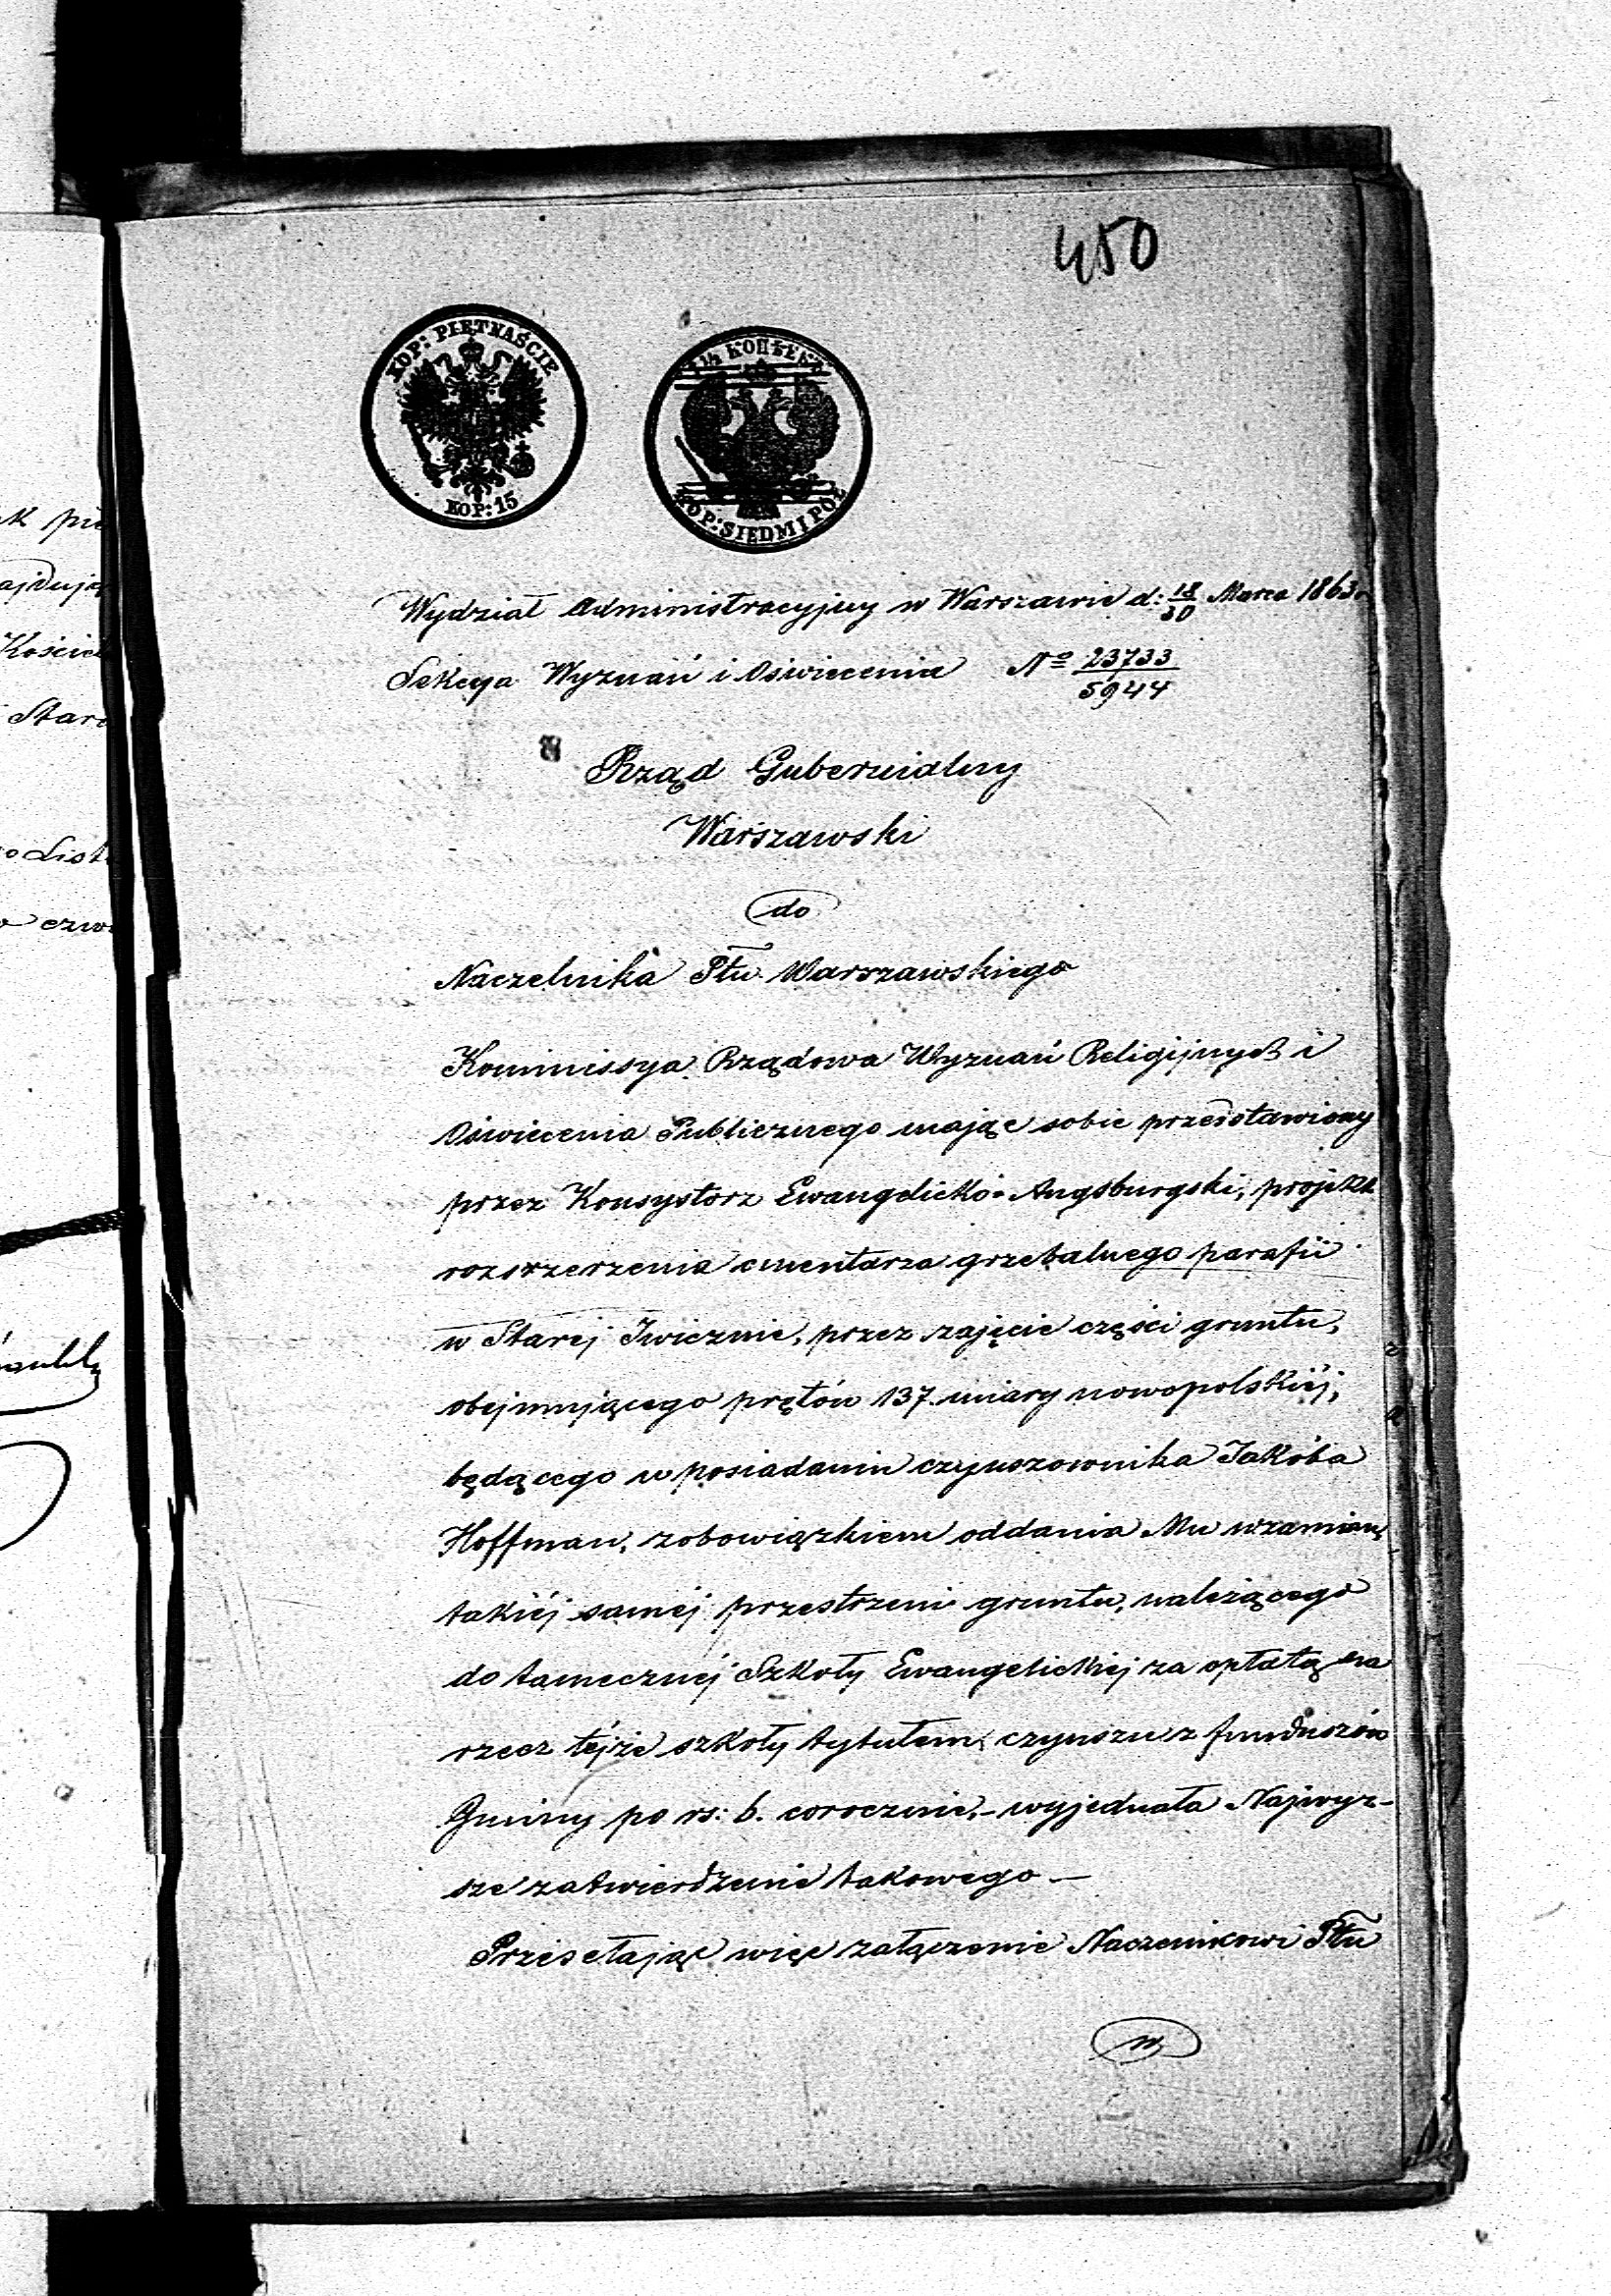 450
KOP: PIĘTNAŚCIE
KOP: 15
7½ КОПѢЕКЪ
KOP: SIEDM I PÓŁ
Wydział Administracyjny w Warszawie d: 18/30 Marca 1863 r.
Sekcya Wyznań i Oświecenia Nº 23733/5944
Rząd Gubernialny
Warszawski
do
Naczelnika Ptu Warszawskiego
Kommissya Rządowa Wyznań Religijnych i
Oświecenia Publicznego mając sobie przedstawiony
przez Konsystorz Ewangelicko-Augsburgski, projekt
rozszerzenia cmentarza grzebalnego parafii
w Starej Iwicznie, przez zajęcie części gruntu,
obejmującego prętów 137 miary nowopolskiéj,
będącego w posiadaniu czynszownika Jakóba
Hoffman, zobowiązkiem oddania Mu wzamianę
takiéj saméj przestrzeni gruntu, należącego
do tamecznéj Szkoły Ewangelickiej za opłatą na
rzecz téjże szkoły tytułem czynszu z funduszów
Gminy po rs: 6. corocznie, – wyjednała Najwyż-
sze zatwierdzenie takowego —
Przesełając więc załączenie Naczelnikowi Ptu